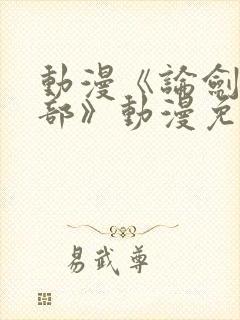 動漫《論劍
部》動漫免
易武尊